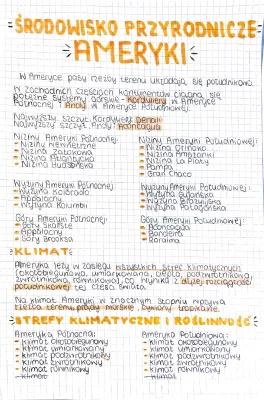 ŚRODOWISKO PRZYRODNICZE
AMERYKI
W Ameryce pasy rzeźby terenu układają się południkowo.
W zachodnich częściach kontynentów ciągną się
potężne systemy górskie - Kordyliery w Ameryce
Północnej i Andy w Ameryce Południowej.
Najwyższy szczyt Kordylierów Denali
Najwyższy szczyt Andy Aconcagua
Niziny Ameryki Północnej:
- Niziny Wewnętrzne
- Nizina Zatokowa
- Nizina Atlantycka
- Nizina Hudsońska
Niziny Ameryki Południowej:
- Nizina Orinoko
- Nizina Amazonki
- Nizina La Platy
- Pampa
- Gran Chaco
Wyżyny Ameryki Północnej:
- Wyżyna Kolorado
- Appalachy
- Wyżyna Kolumbii
Wyżyny Ameryki Południowej:
- Wyżyna Gujańska
- Wyżyna Brazylijska
- Wyżyna Patagońska
Góry Ameryki Północnej:
- Góry Skaliste
- Appalachy
- Góry Brooksa
Góry Ameryki Południowej:
- Aconcagua
- Bandeira
- Roraima
KLIMAT
Ameryka leży w zasięgu wszystkich stref klimatycznych
(okołobiegunowa, umiarkowana, ciepła, podzwrotnikowa,
zwrotnikowa, równikowa), co wynika z dużej rozciągłości
południkowej tej części świata.
Na klimat Ameryki w znacznym stopniu wpływa
rzeźba terenu, prądy morskie, cyklony tropikalne.
STREFY KLIMATYCZNE I ROŚLINNOŚĆ
Ameryka Północna:
- klimat okołobiegunowy
- klimat umiarkowany
- klimat podzwrotnikowy
- klimat zwrotnikowy
- klimat równikowy
- klimat
Ameryka Południowa:
- klimat okołobiegunowy
- klimat umiarkowany
- klimat podzwrotnikowy
- klimat zwrotnikowy
- klimat równikowy
- klimat